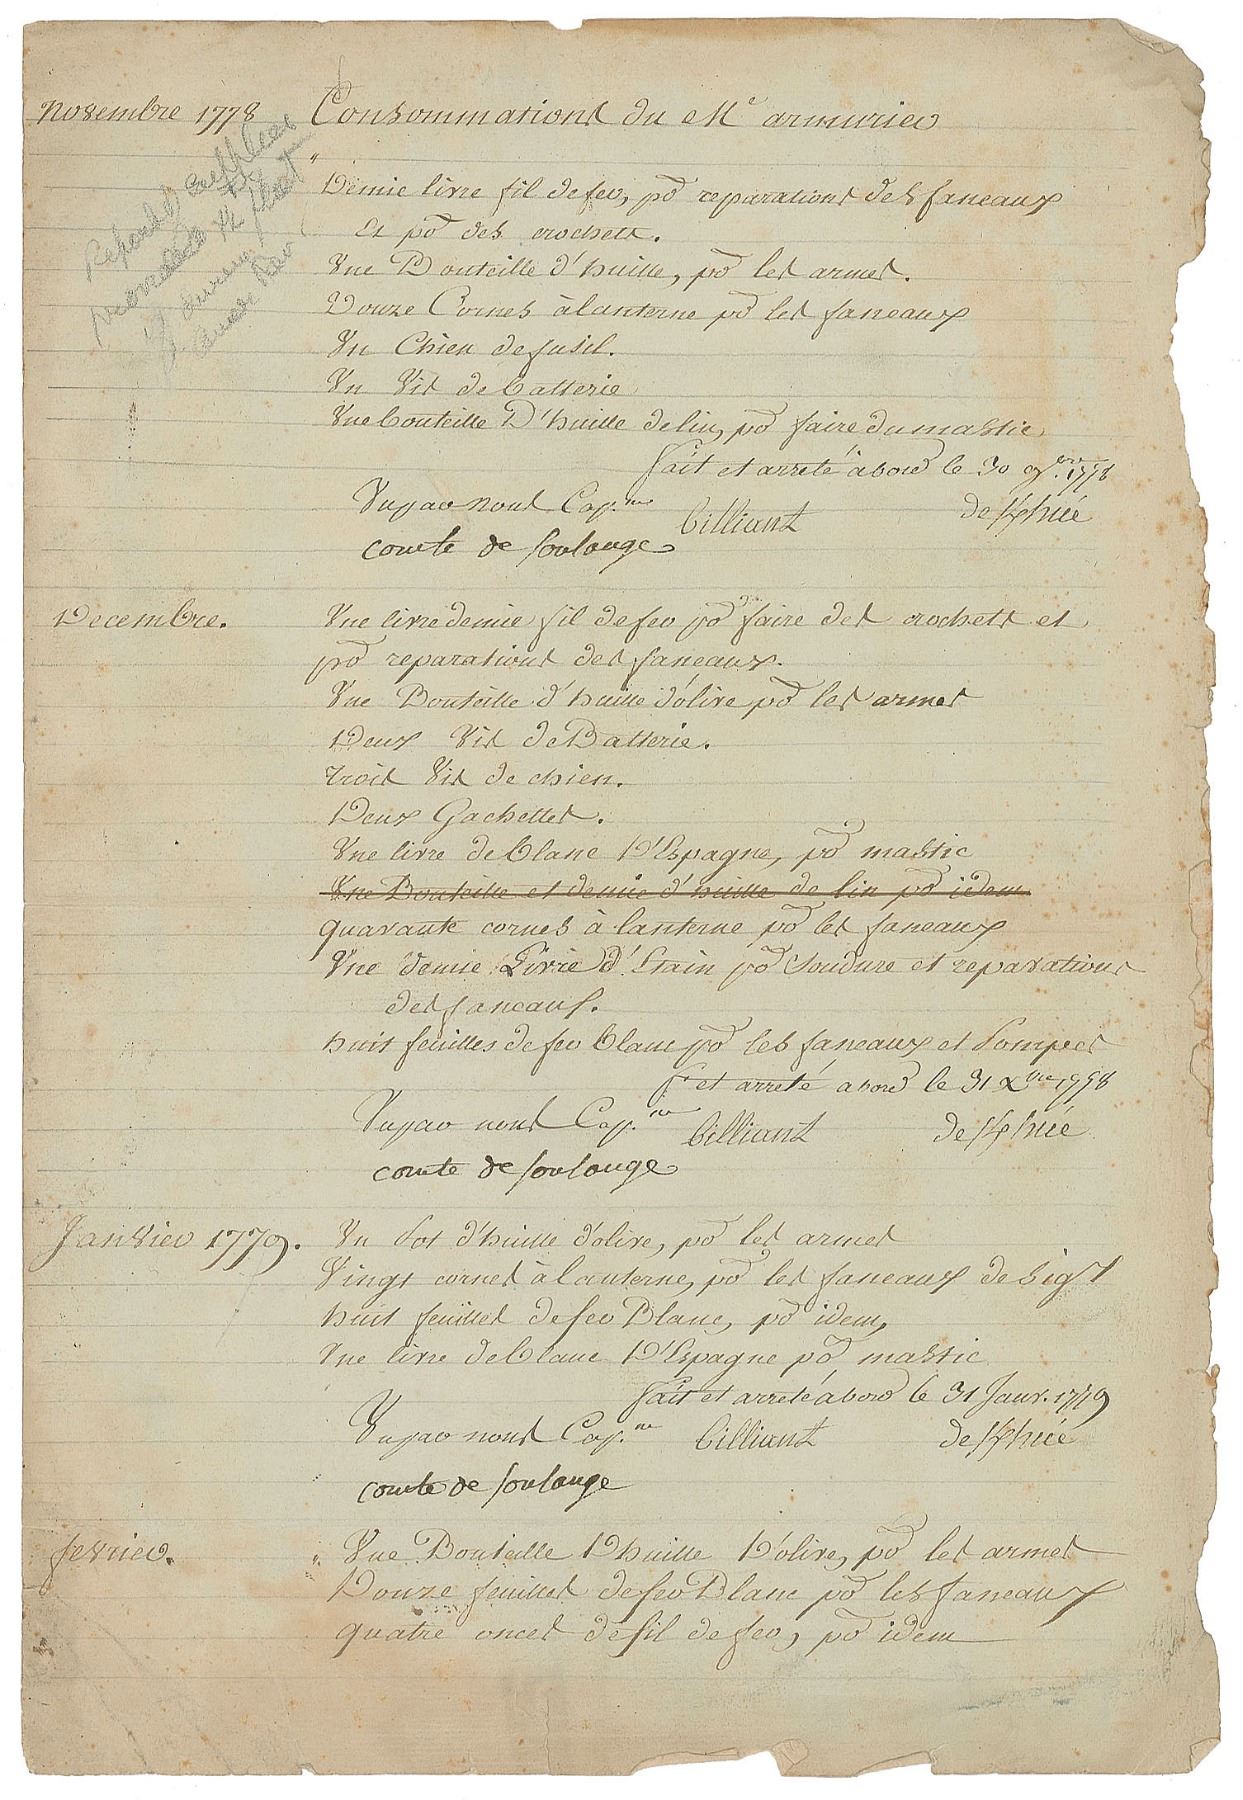 Novembre 1778 Consommations du Me armurier
Demie livre fil de fer, pr reparations des faneaux
et pr des crochets.
Une Bouteille d'huille, pr les armes.
Douze Cornes à lanterne pr les faneaux
Un Chien de fusil.
Un Vis de batterie
Une bouteille D'huille de lin, pr faire du mastic
fait et arreté à bord le 30 9bre. 1778
Vu par nous Cap.ne billiant
comte de soulange
Decembre. Une livre demie fil de fer pr faire des crochets et
pr reparations des faneaux.
Une Bouteille d'huille d'olive pr les armes
Deux Vis de Batterie.
trois Vis de chien.
Deux Gachettes.
Une livre de blanc D'Espagne, pr mastic
Une Bouteille et demie d'huille de lin pr idem
quarante cornes à lanterne pr les faneaux
Une demie Livre d'Etain pr Soudure et reparations
des faneaux.
huit feuilles de fer blanc pr les faneaux et Pompes
ft et arreté a bord le 31 Xbre 1778
Vu par nous Cap.ne billiant
comte de soulange
Janvier 1779. Un Pot d'huille d'olive, pr les armes
Vingt cornes à lanterne, pr les faneaux de
huit feuilles de fer Blanc, pr idem,
Une livre de blanc D'Espagne pr mastic
fait et arreté à bord le 31 Janv. 1779
Vu par nous Cap.ne billiant
comte de soulange
fevrier. Une Bouteille D'huille D'olive, pr les armes
Douze feuilles de fer Blanc pr les faneaux
quatre onces de fil de fer, pr idem